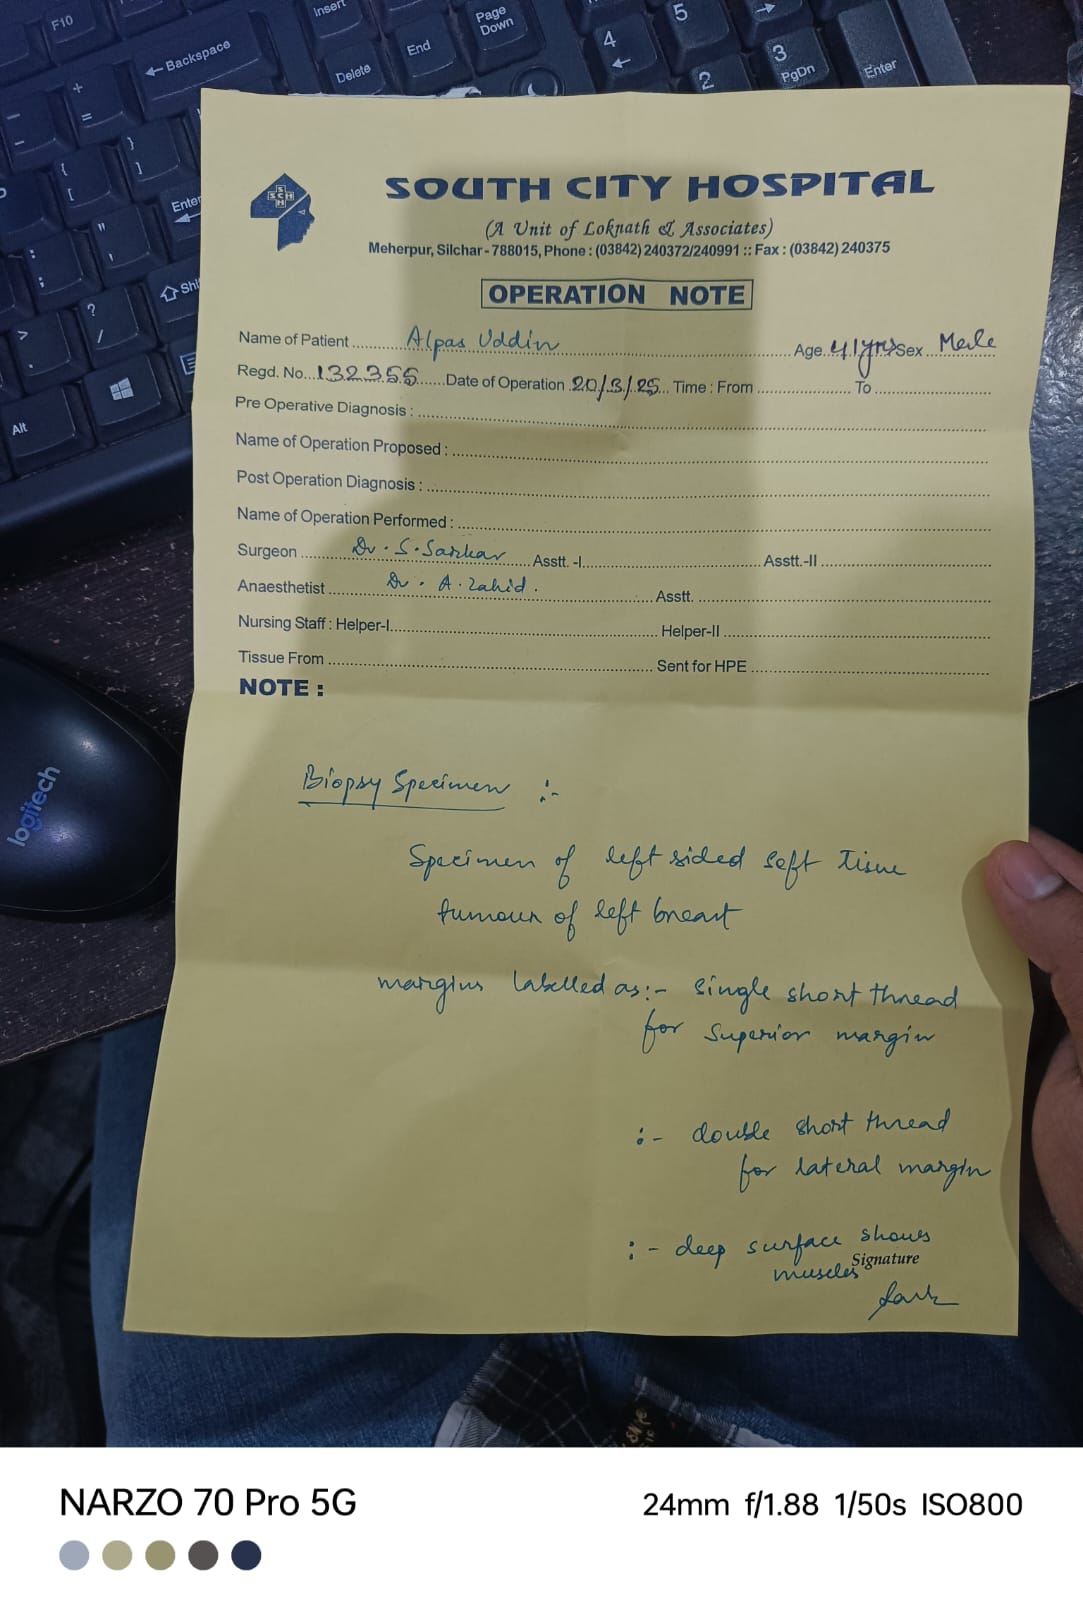 F10
Insert
Page Down
Backspace
Delete
End
4
5
2
3
PgDn
Enter
Enter
Shi
Alt
logitech
SCH
SOUTH CITY HOSPITAL
(A Unit of Loknath & Associates)
Meherpur, Silchar - 788015, Phone : (03842) 240372/240991 :: Fax : (03842) 240375
OPERATION NOTE
Name of Patient Alpas Uddin Age 41yrs Sex Male
Regd. No. 132355 Date of Operation 20/3/25 Time : From To
Pre Operative Diagnosis :
Name of Operation Proposed :
Post Operation Diagnosis :
Name of Operation Performed :
Surgeon Dr. S. Sarkar Asstt. -I Asstt.-II
Anaesthetist Dr. A. Zahid. Asstt.
Nursing Staff : Helper-I Helper-II
Tissue From Sent for HPE
NOTE :
Biopsy Specimen :-
Specimen of left sided soft tissue
tumour of left breast
margins labelled as:- single short thread
for superior margin
:- double short thread
for lateral margin
:- deep surface shows
muscles
Signature
NARZO 70 Pro 5G
24mm f/1.88 1/50s ISO800